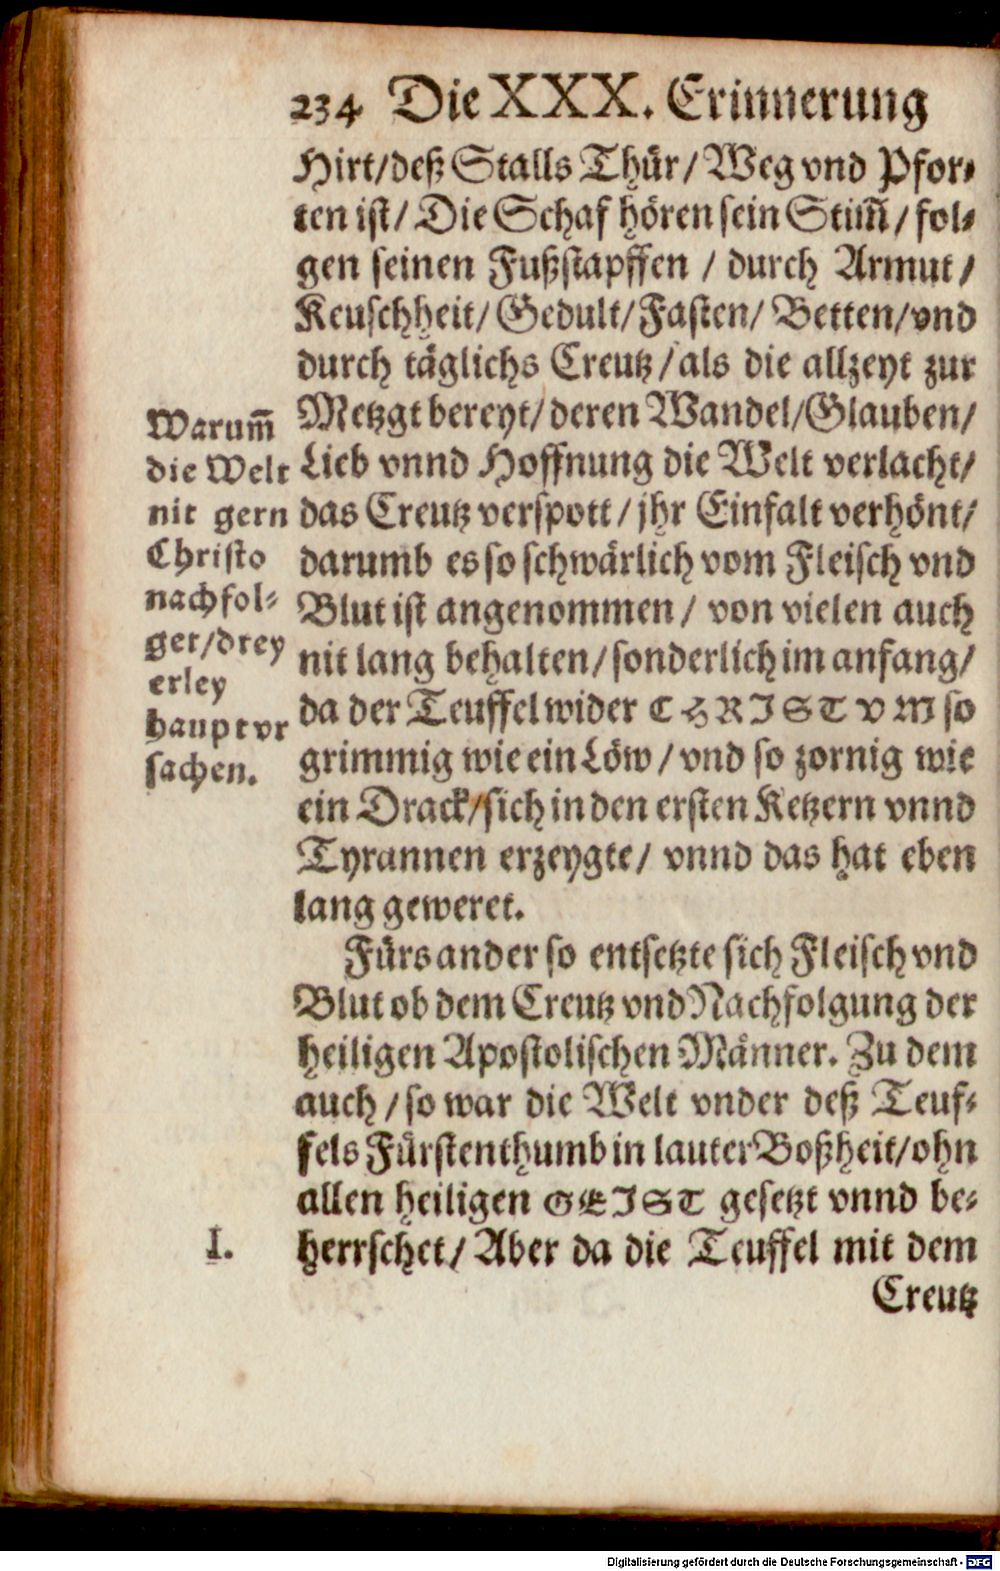 234 Die XXX. Erinnerung
Hirt/deß Stalls Thür/Weg vnd Pfor-
ten ist/ Die Schaf hören sein Stim̄/ fol-
gen seinen Fußstapffen / durch Armut/
Keuschheit/ Gedult/Fasten/ Betten/vnd
durch täglichs Creutz/als die allzeyt zur
Metzgt bereyt/ deren Wandel/Glauben/
Lieb vnnd Hoffnung die Welt verlacht/
das Creutz verspott/ jhr Einfalt verhönt/
darumb es so schwärlich vom Fleisch vnd
Blut ist angenommen/ von vielen auch
nit lang behalten/sonderlich im anfang/
da der Teuffel wider CHRISTVM so
grimmig wie ein Löw/ vnd so zornig wie
ein Drack/sich in den ersten Ketzern vnnd
Tyrannen erzeygte/ vnnd das hat eben
lang geweret.
Fürs ander so entsetzte sich Fleisch vnd
Blut ob dem Creutz vnd Nachfolgung der
heiligen Apostolischen Männer. Zu dem
auch/so war die Welt vnder deß Teuf-
fels Fürstenthumb in lauter Boßheit/ohn
allen heiligen GEIST gesetzt vnnd be-
herrschet/ Aber da die Teuffel mit dem
Creutz
Warum̄
die Welt
nit gern
Christo
nachfol-
get/drey
erley
haupt vr
sachen.
I.
Digitalisierung gefördert durch die Deutsche Forschungsgemeinschaft - DFG